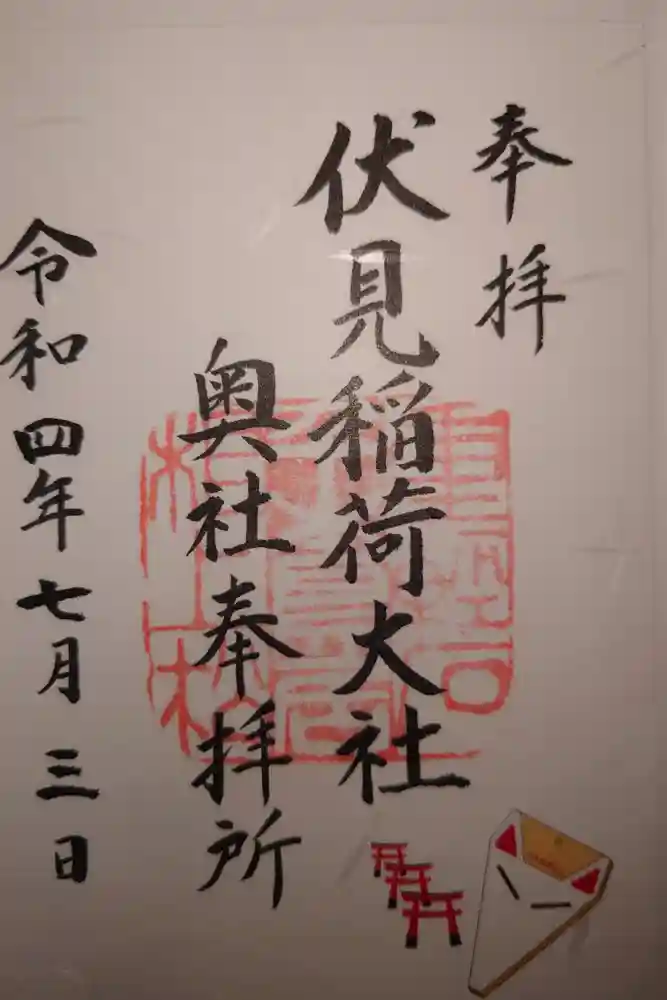 奉拝
伏見稲荷大社
奥社奉拝所
令和四年七月三日